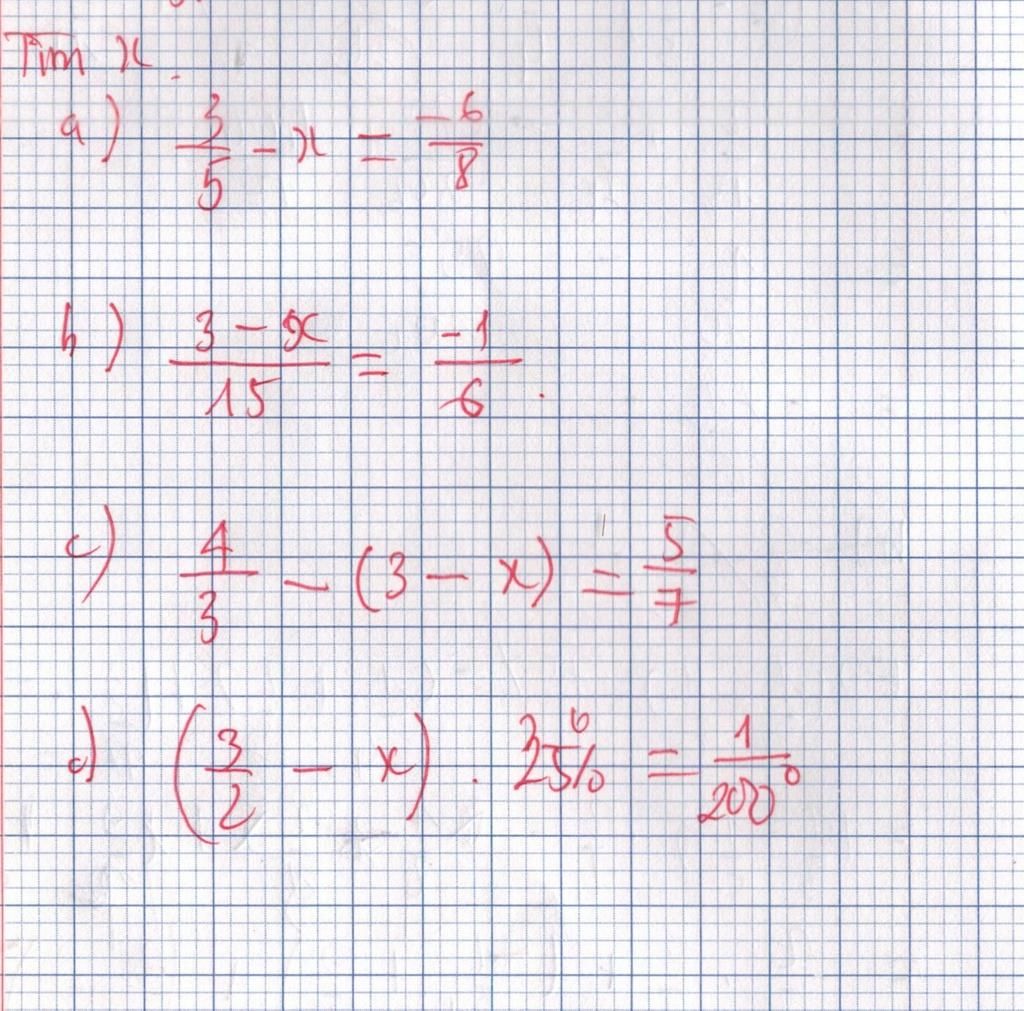 Tìm x.
a) 3/5 - x = -6/8
b) (3 - x)/15 = -1/6.
c) 4/3 - (3 - x) = 5/7
d) (3/2 - x) . 25% = 1/200